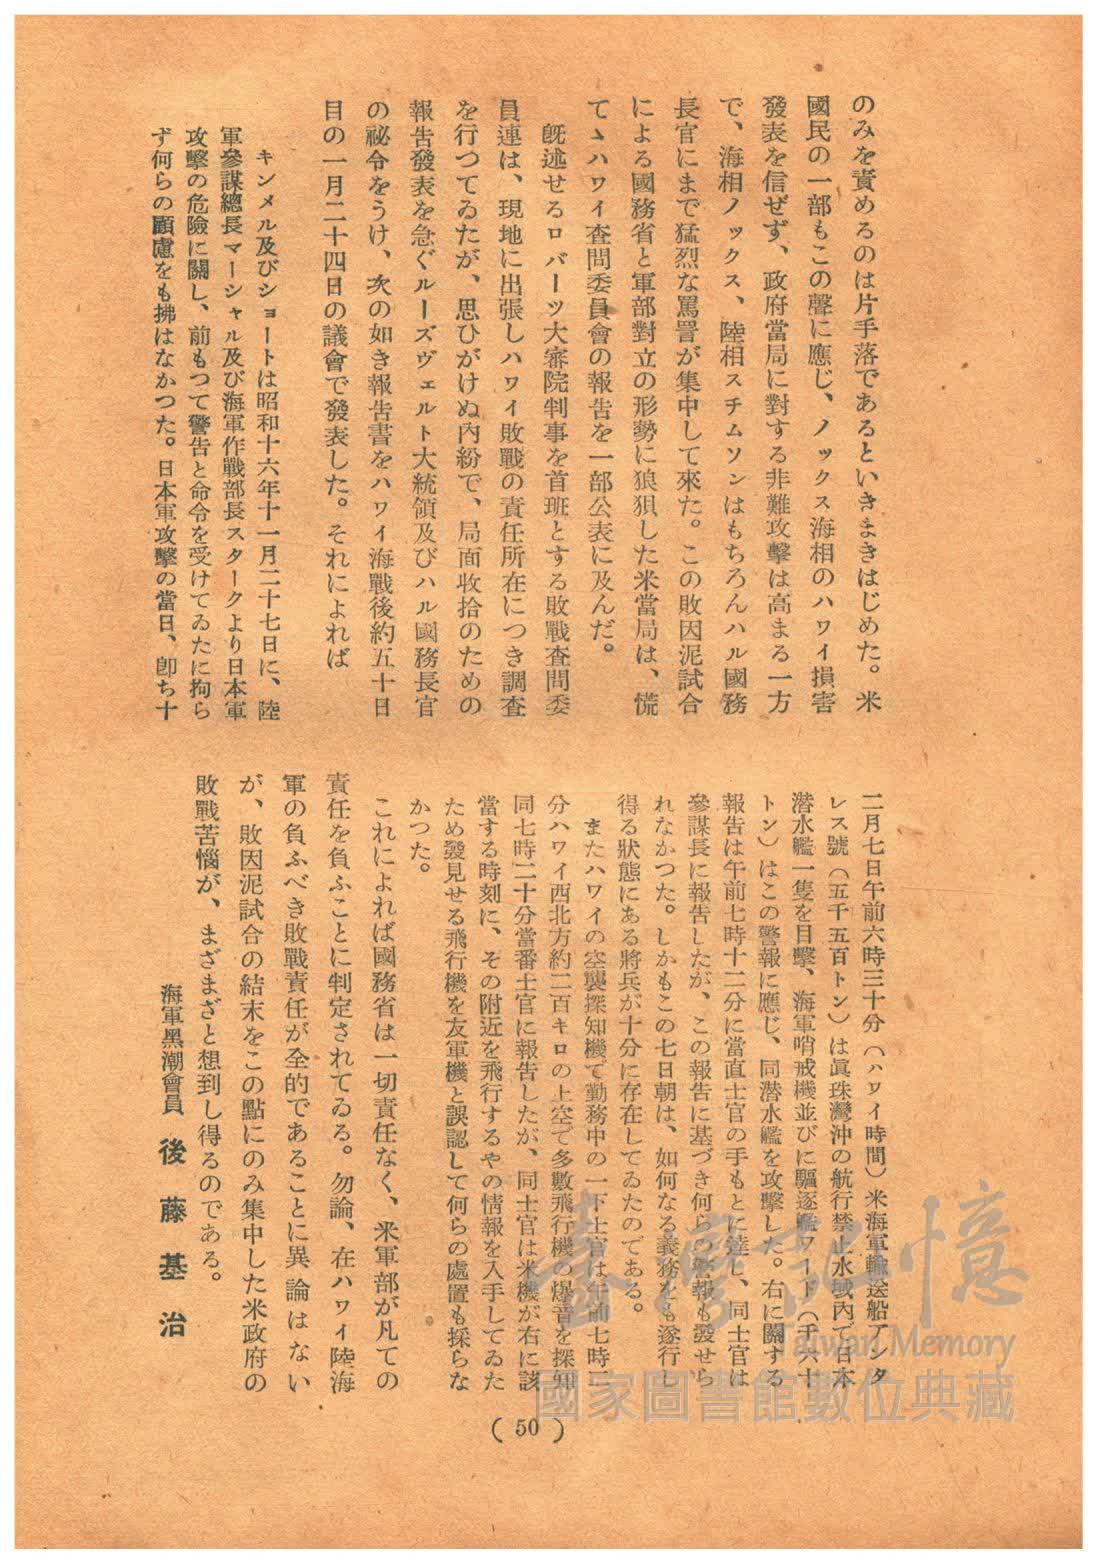 のみを責めるのは片手落であるといきまきはじめた。米
國民の一部もこの聲に應じ、ノックス海相のハワイ損害
發表を信ぜず、政府當局に對する非難攻擊は高まる一方
で、海相ノックス、陸相スチムソンはもちろんハル國務
長官にまで猛烈な罵詈が集中して來た。この敗因泥試合
による國務省と軍部對立の形勢に狼狽した米當局は、慌
てゝハワイ査問委員會の報告を一部公表に及んだ。
既述せるロバーツ大審院判事を首班とする敗戰査問委
員連は、現地に出張しハワイ敗戰の責任所在につき調査
を行つてゐたが、思ひがけぬ內紛で、局面收拾のための
報告發表を急ぐルーズヴェルト大統領及びハル國務長官
の祕令をうけ、次の如き報告書をハワイ海戰後約五十日
目の一月二十四日の議會で發表した。それによれば
キンメル及びショートは昭和十六年十一月二十七日に、陸
軍參謀總長マーシャル及び海軍作戰部長スタークより日本軍
攻擊の危險に關し、前もつて警告と命令を受けてゐたに拘ら
ず何らの顧慮をも拂はなかつた。日本軍攻擊の當日、卽ち十
二月七日午前六時三十分（ハワイ時間）米海軍輸送船アンタ
レス號（五千五百トン）は眞珠灣沖の航行禁止水域內で日本
潛水艦一隻を目擊、海軍哨戒機並びに驅逐艦ワード（千六十
トン）はこの警報に應じ、同潛水艦を攻擊した。右に關する
報告は午前七時十二分に當直士官の手もとに達し、同士官は
參謀長に報告したが、この報告に基づき何らの警報も發せら
れなかつた。しかもこの七日朝は、如何なる義務をも遂行し
得る狀態にある將兵が十分に存在してゐたのである。
またハワイの空襲探知機で勤務中の一下士官は午前七時二
分ハワイ西北方約二百キロの上空で多數飛行機の爆音を探知
同七時二十分當番士官に報告したが、同士官は米機が右に該
當する時刻に、その附近を飛行するやの情報を入手してゐた
ため發見せる飛行機を友軍機と誤認して何らの處置も採らな
かつた。
これによれば國務省は一切責任なく、米軍部が凡ての
責任を負ふことに判定されてゐる。勿論、在ハワイ陸海
軍の負ふべき敗戰責任が全的であることに異論はない
が、敗因泥試合の結末をこの點にのみ集中した米政府の
敗戰苦惱が、まざまざと想到し得るのである。
海軍黑潮會員　後藤基治
( 50 )
臺灣記憶
Taiwan Memory
國家圖書館數位典藏